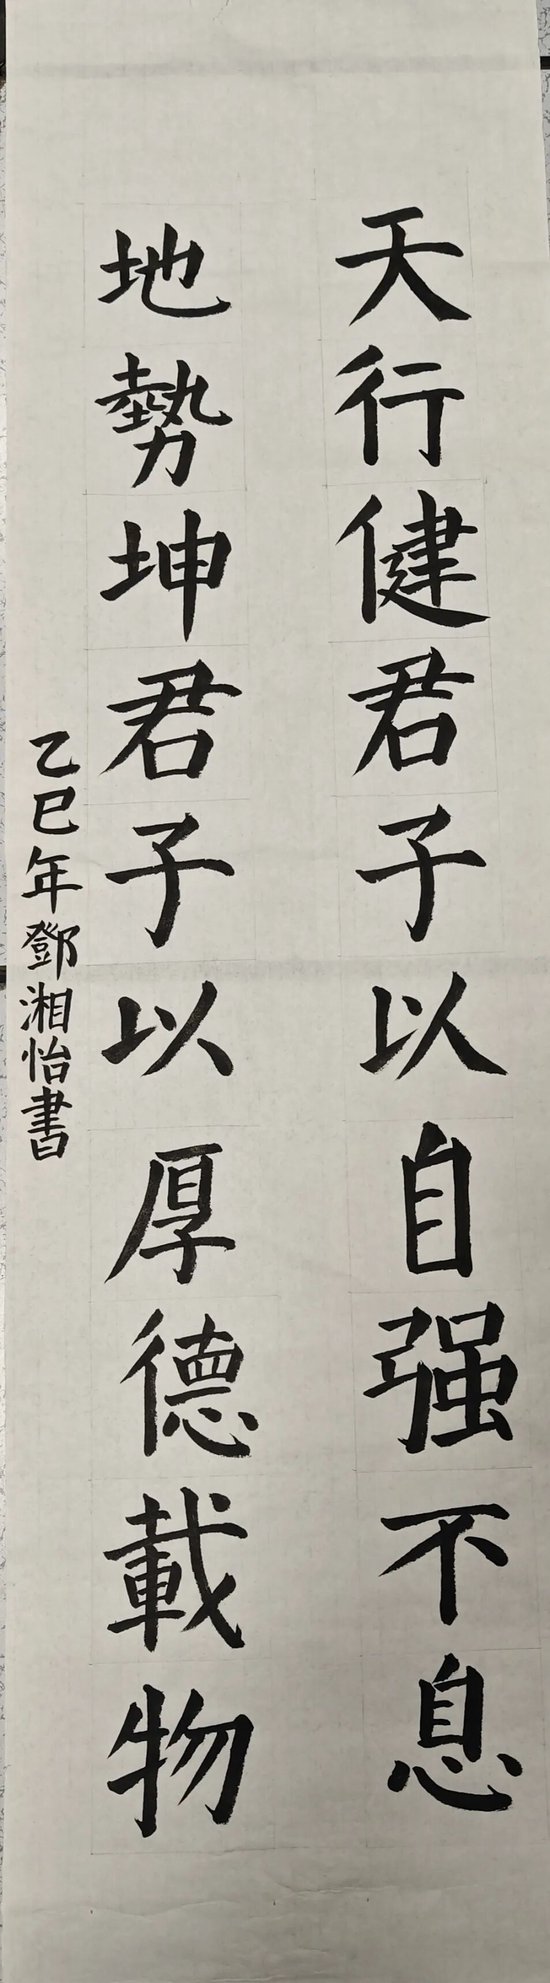 天行健君子以自强不息
地勢坤君子以厚德載物
乙巳年鄧湘怡書